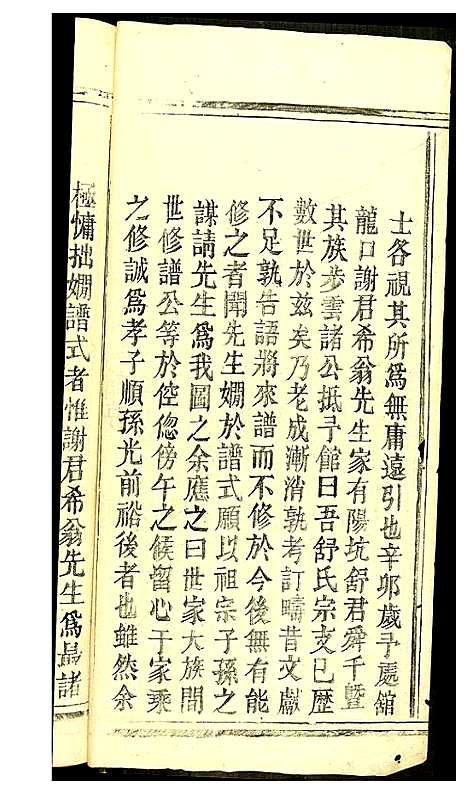 士各視其所爲無庸遠引也辛卯歲予處舘
龍口謝君希翁先生家有陽坑舒君舜千暨
其族步雲諸公抵予館曰吾舒氏宗支已歷
數世於兹矣乃老成漸消孰考訂疇昔文獻
不足孰告語將來譜而不修於今後無有能
修之者聞先生嫺於譜式願以祖宗子孫之
謀請先生爲我圖之余應之曰世家大族間
世修譜公等於倥偬傍午之候留心于家乘
之修誠爲孝子順孫光前裕後者也雖然余
極慵拙嫺譜式者惟謝君希翁先生爲最諸